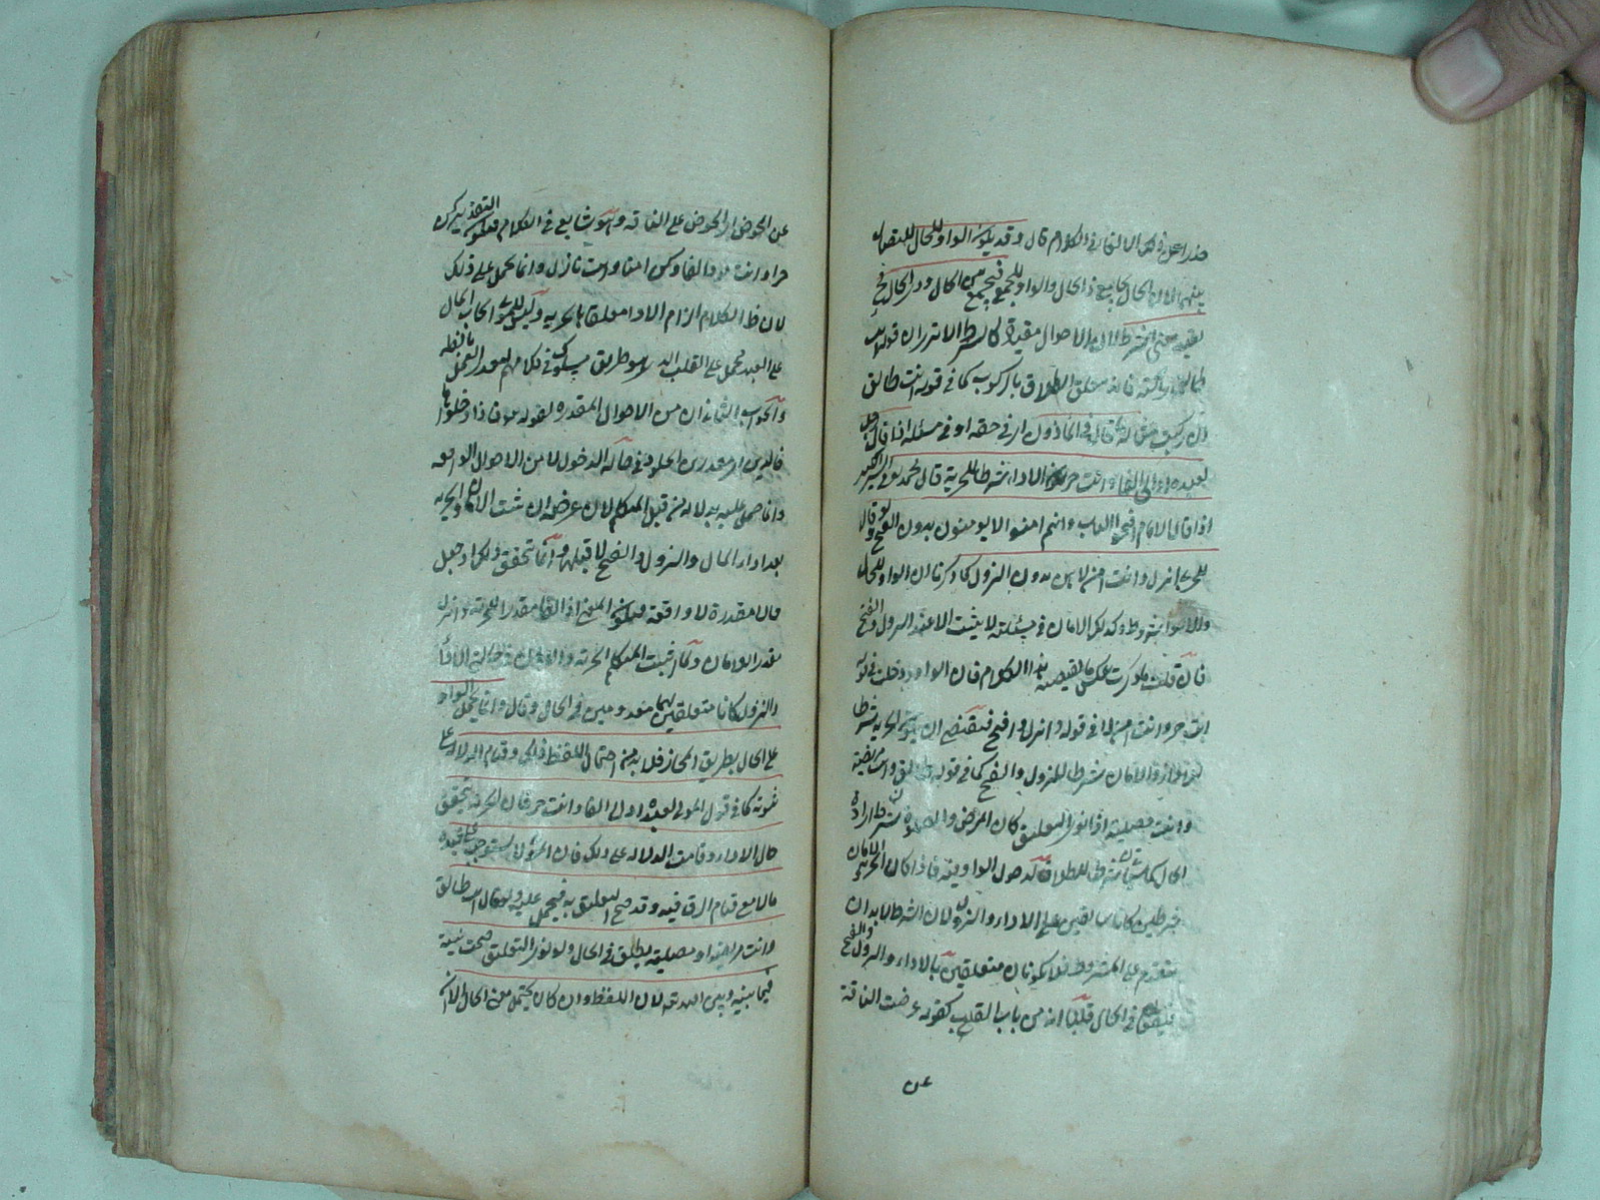 الكلام قال وقد يكون الواو للحال
لان الحال يجامع ذا الحال والواو للجمع
معنى الشرط لان الاحوال مقيدة كالشرط الا ترى ان قوله انت
طالق راكبة فانه معلق الطلاق بالركوب كما في قوله انت طالق
ان ركبت قال في الماذون اي في حقه او في مسئلة اذا قال رجل
لعبده اد الي الفا وانت حر الاداء شرطا للحرية قال محمد في السير الكبير
اذا قال الامام افتحوا الباب وانتم امنون لا يومنون بدون الفتح ولو قال
للحربي انزل وانت امن لا يامن بدون النزول لما ذكرنا ان الواو للحال
والاحوال شروط وكذلك الامان في مسئلته لا يثبت الا عند النزول والفتح
فان قلت ما ذكرت عكس ما يقتضيه هذا الكلام فان الواو دخلت في قوله
انت حر وانت امن لا في قوله انزل وافتح فيقتضي ان يكون الحرية شرطا
والامان شرطا للنزول والفتح كما في قوله طالق وانت مريضة
وانت مصلية اذا نوى التعليق كان المرض والصلوة شرطا
شرطا للطلاق لدخول الواو فيه فاذا كان الحرية والامان
شرطين كانا سابقين على الاداء والنزول لان الشرط لابد ان
يتقدم على المشروط فلا يكونان متعلقين بالاداء والنزول والفتح
في الحال قلنا انه من باب القلب كقوله عرضت الناقة
عن
عن الحوض اي الحوض على الناقة وهو شايع في الكلام فيكون التقدير كن
حرا وانت مود الفا وكن امنا وانت نازل وانما يحمل على ذلك
لان ظاهر الكلام الزام الاداء معلقا بالحرية وليس للمولى ايجاب المال
على العبد فحمل على القلب الذي هو طريق مسلوك في كلامهم
والجواب الثاني ان من الاحوال المقدرة لقوله تعالى فادخلوها
خالدين اي مقدرين الخلود في حالة الدخول لا من الاحوال الواقعة
وانما حمل عليه بدلالة من قبل المتكلم لان غرضه ان يثبت الامان والحرية
بعد اداء المال والنزول والفتح لا قبلها وانما يتحقق ذلك اذا جعل
حالا مقدرة لا واقعة فيكون المعنى اد الي الفا مقدرا للحرية وانزل
مقدرا للامان ولما اثبت المتكلم الحرية والامان في حالة الاداء
والنزول كانا متعلقين بهما معدومين في الحال وقال وانما يحمل الواو
على الحال بطريق المجاز فلا بد من احتمال اللفظ ذلك وقيام الدلالة على
ثبوته كما في قول المولى لعبده اد الي الفا وانت حر فان الحرية تتحقق
حال الاداء وقامت الدلالة على ذلك فان المولى لا يستوجب على عبده
مالا مع قيام الرق فيه وقد صح التعليق به فيحمل عليه ولو قال انت طالق
وانت مريضة او مصلية يطلق في الحال ولو نوى التعليق صحت نيته
فيما بينه وبين الله تعالى لان اللفظ وان كان يحتمل معنى الحال الا ان